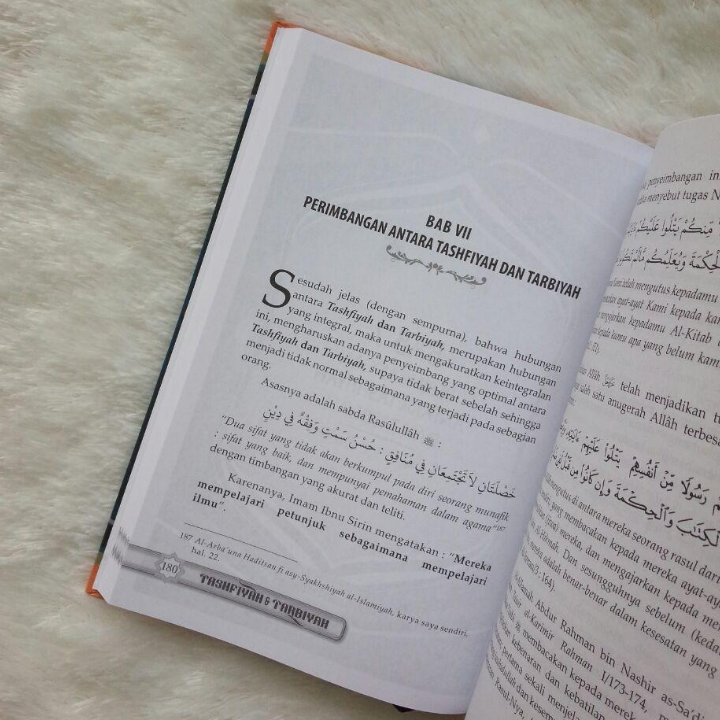 BAB VII
PERIMBANGAN ANTARA TASHFIYAH DAN TARBIYAH
Sesudah jelas (dengan sempurna), bahwa hubungan
antara Tashfiyah dan Tarbiyah, merupakan hubungan
yang integral, maka untuk mengakuratkan keintegralan
ini, mengharuskan adanya penyeimbang yang optimal antara
Tashfiyah dan Tarbiyah, supaya tidak berat sebelah sehingga
menjadi tidak normal sebagaimana yang terjadi pada sebagian
orang.
Asasnya adalah sabda Rasûlullâh ﷺ :
خَصْلَتَانِ لَا تَجْتَمِعَانِ فِي مُنَافِقٍ : حُسْنُ سَمْتٍ وَفِقْهٌ فِي دِيْنٍ
"Dua sifat yang tidak akan berkumpul pada diri seorang munafik
: sifat yang baik, dan mempunyai pemahaman dalam agama"187
dengan timbangan yang akurat dan teliti.
Karenanya, Imam Ibnu Sirin mengatakan : "Mereka
mempelajari petunjuk sebagaimana mempelajari
ilmu".
187 Al-Arba'una Haditsan fi asy-Syakhshiyah al-Islamiyah, karya saya sendiri,
hal. 22.
180
TASHFIYAH & TARBIYAH
penyeimbangan ini
menyebut tugas N
مِنْكُمْ يَتْلُوا عَلَيْكُمْ
وَيُعَلِّمُكُمْ مَا لَمْ
telah mengutus kepadamu
ayat-ayat Kami kepada ka
kepadamu Al-Kitab
apa yang belum kam
telah menjadikan
satu anugerah Allâh terbes
رَسُولًا مِنْ أَنْفُسِهِمْ يَتْلُوا عَلَيْهِمْ
الْكِتَابَ وَالْحِكْمَةَ وَإِنْ كَانُوا مِنْ
mengutus di antara mereka seorang rasul dar
yang membacakan kepada mereka ayat-ay
(jiwa) mereka, dan mengajarkan kepada mere
al-Hikmah. Dan sesungguhnya sebelum (keda
adalah benar-benar dalam kesesatan yang
3: 164).
Abdur Rahman bin Nashir as-Sa'd
Rahman I/173-174,
membacakan kepada mere
kebenaran dan kebatilan
pertama sekali menjela